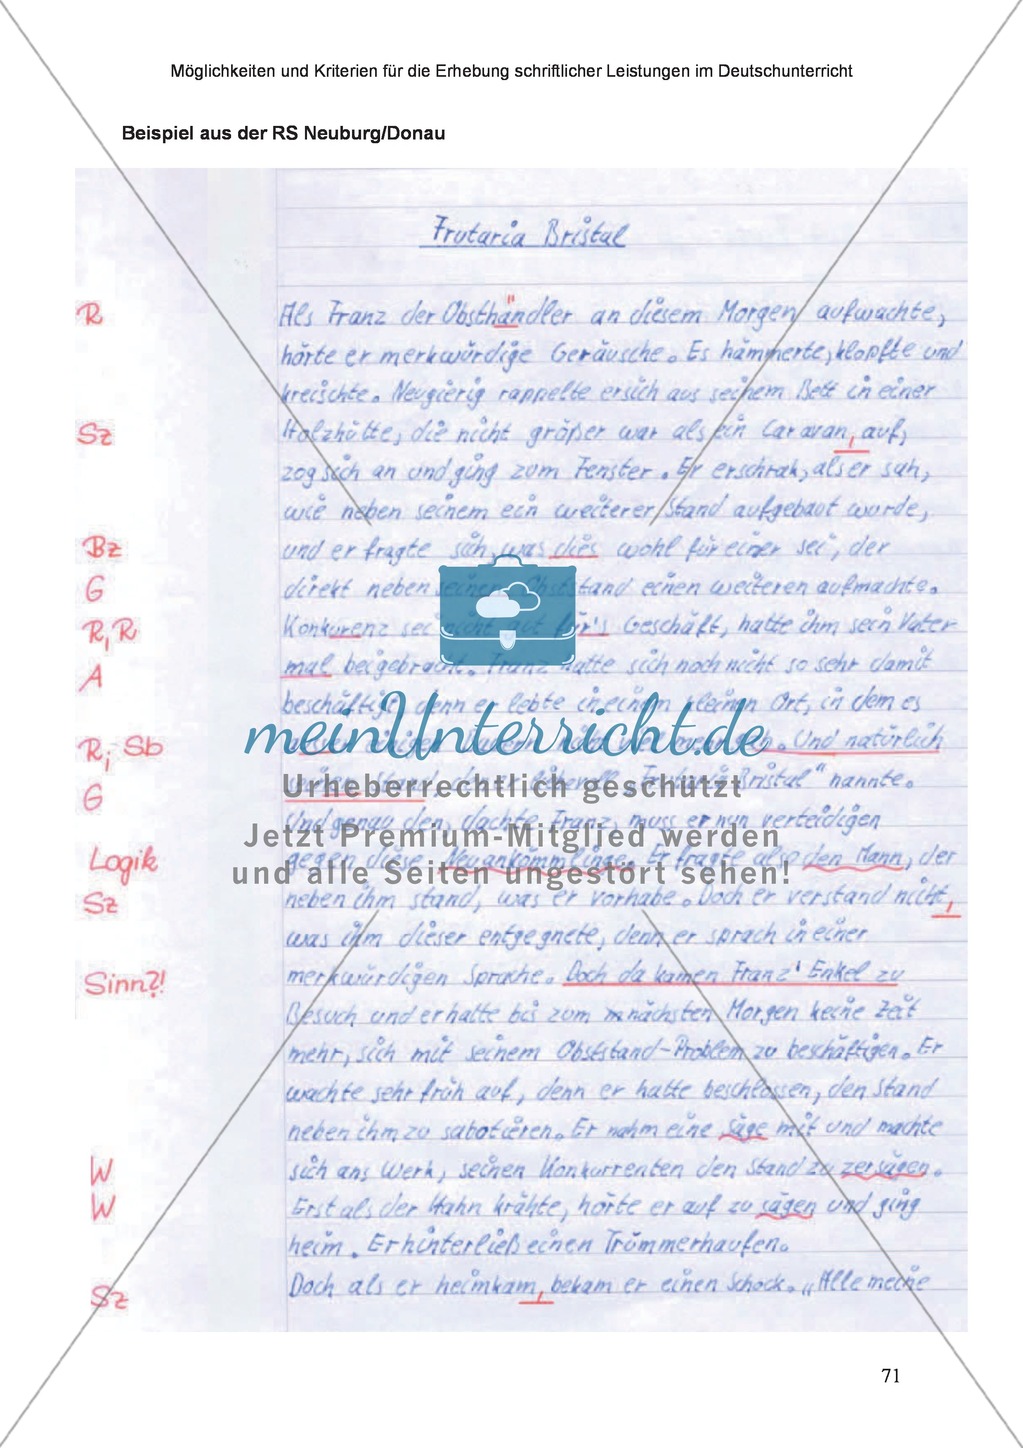 Möglichkeiten und Kriterien für die Erhebung schriftlicher Leistungen im Deutschunterricht
Beispiel aus der RS Neuburg/Donau
Frutaria Bristal
R Als Franz der Obsthändler an diesem Morgen aufwachte,
hörte er merkwürdige Geräusche. Es hämmerte, klopfte und
kreischte. Neugierig rappelte er sich aus seinem Bett in einer
Sz Holzhütte, die nicht größer war als ein Caravan, auf,
zog sich an und ging zum Fenster. Er erschrak, als er sah,
wie neben seinem ein weiterer Stand aufgebaut wurde,
Bz und er fragte sich, was dies wohl für einer sei, der
G direkt neben seinem Obststand einen weiteren aufmachte.
R, R Konkurenz sei nicht gut für's Geschäft, hatte ihm sein Vater
A mal beigebracht. Franz hatte sich noch nicht so sehr damit
beschäftigt, denn er lebte in einem kleinen Ort, in dem es
R; Sb Und natürlich
G Stand, Bristal" nannte.
Und genau den, dachte Franz, muss er nun verteidigen
Logik gegen diese Neuankömmlinge. Er fragte also den Mann, der
Sz neben ihm stand, was er vorhabe. Doch er verstand nicht,
was ihm dieser entgegnete, denn er sprach in einer
Sinn?! merkwürdigen Sprache. Doch da kamen Franz' Enkel zu
Besuch und er hatte bis zum nächsten Morgen keine Zeit
mehr, sich mit seinem Obststand-Problem zu beschäftigen. Er
wachte sehr früh auf, denn er hatte beschlossen, den Stand
neben ihm zu sabotieren. Er nahm eine Säge mit und machte
W sich ans Werk, seinen Konkurrenten den Stand zu zersägen.
W Erst als der Hahn krähte, hörte er auf zu sägen und ging
heim. Er hinterließ einen Trümmerhaufen.
Sz Doch als er heimkam, bekam er einen Schock. „Alle meine
meinUnterricht.de
Urheberrechtlich geschützt
Jetzt Premium-Mitglied werden
und alle Seiten ungestört sehen!
71